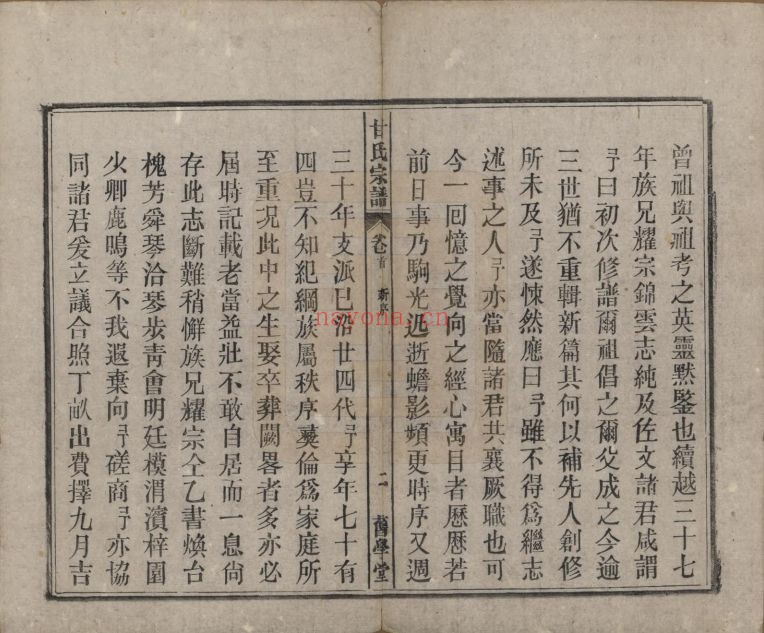 曾祖與祖考之英靈默鑒也續越三十七
年族兄耀宗錦雲志純及佐文諸君咸謂
予曰初次修譜爾祖倡之爾父成之今逾
三世猶不重輯新篇其何以補先人創修
所未及予遂悚然應曰予雖不得爲繼志
述事之人予亦當隨諸君共襄厥職也可
今一回憶之覺向之經心寓目者歷歷若
前日事乃駒光迅逝蟾影頻更時序又週
甘氏宗譜
卷首
新序
二
舊學堂
三十年支派已沿廿四代予享年七十有
四豈不知紀綱族屬秩序彝倫爲家庭所
至重况此中之生娶卒葬闕畧者多亦必
屆時記載老當益壯不敢自居而一息尙
存此志斷難稍懈族兄耀宗仝乙書煥台
槐芳舜琴洽琴步青會明廷模渭濱梓園
少卿鹿鳴等不我遐棄向予磋商予亦協
同諸君爰立議合照丁畝出費擇九月吉
navona.cn